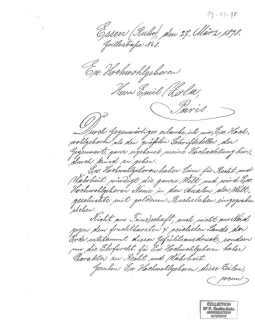 29-03-98
Essen (Ruhr), den 29. März 1898.
Ew. Hochwohlgeboren
Herrn Emil Zola
Paris.
Durch Gegenwärtiges erlaube ich mir, Ew. Hoch-
wohlgeboren als den größten Schriftsteller der
Gegenwart, ganz ergebenst meine Hochachtung hier-
durch kund zu geben.
Ew. Hochwohlgeboren hoher Sinn für Recht und
Wahrheit würdigt die ganze Welt und wird Ew.
Hochwohlgeboren Name in den Annalen der Welt-
geschichte mit goldenen Buchstaben eingegraben
stehen.
Nicht aus Feindschaft, auch nicht aus Neid
gegen den fruchtbarsten & reichsten Lande der
Erde entstammt diesen Gefühlsausdruck, sondern
nur die Ehrfurcht für Ew. Hochwohlgeboren hoher
Charakter zu Recht und Wahrheit.
Ew. Hochwohlgeboren diese Zeilen,
COLLECTION
REPRODUCTION
INTERDITE